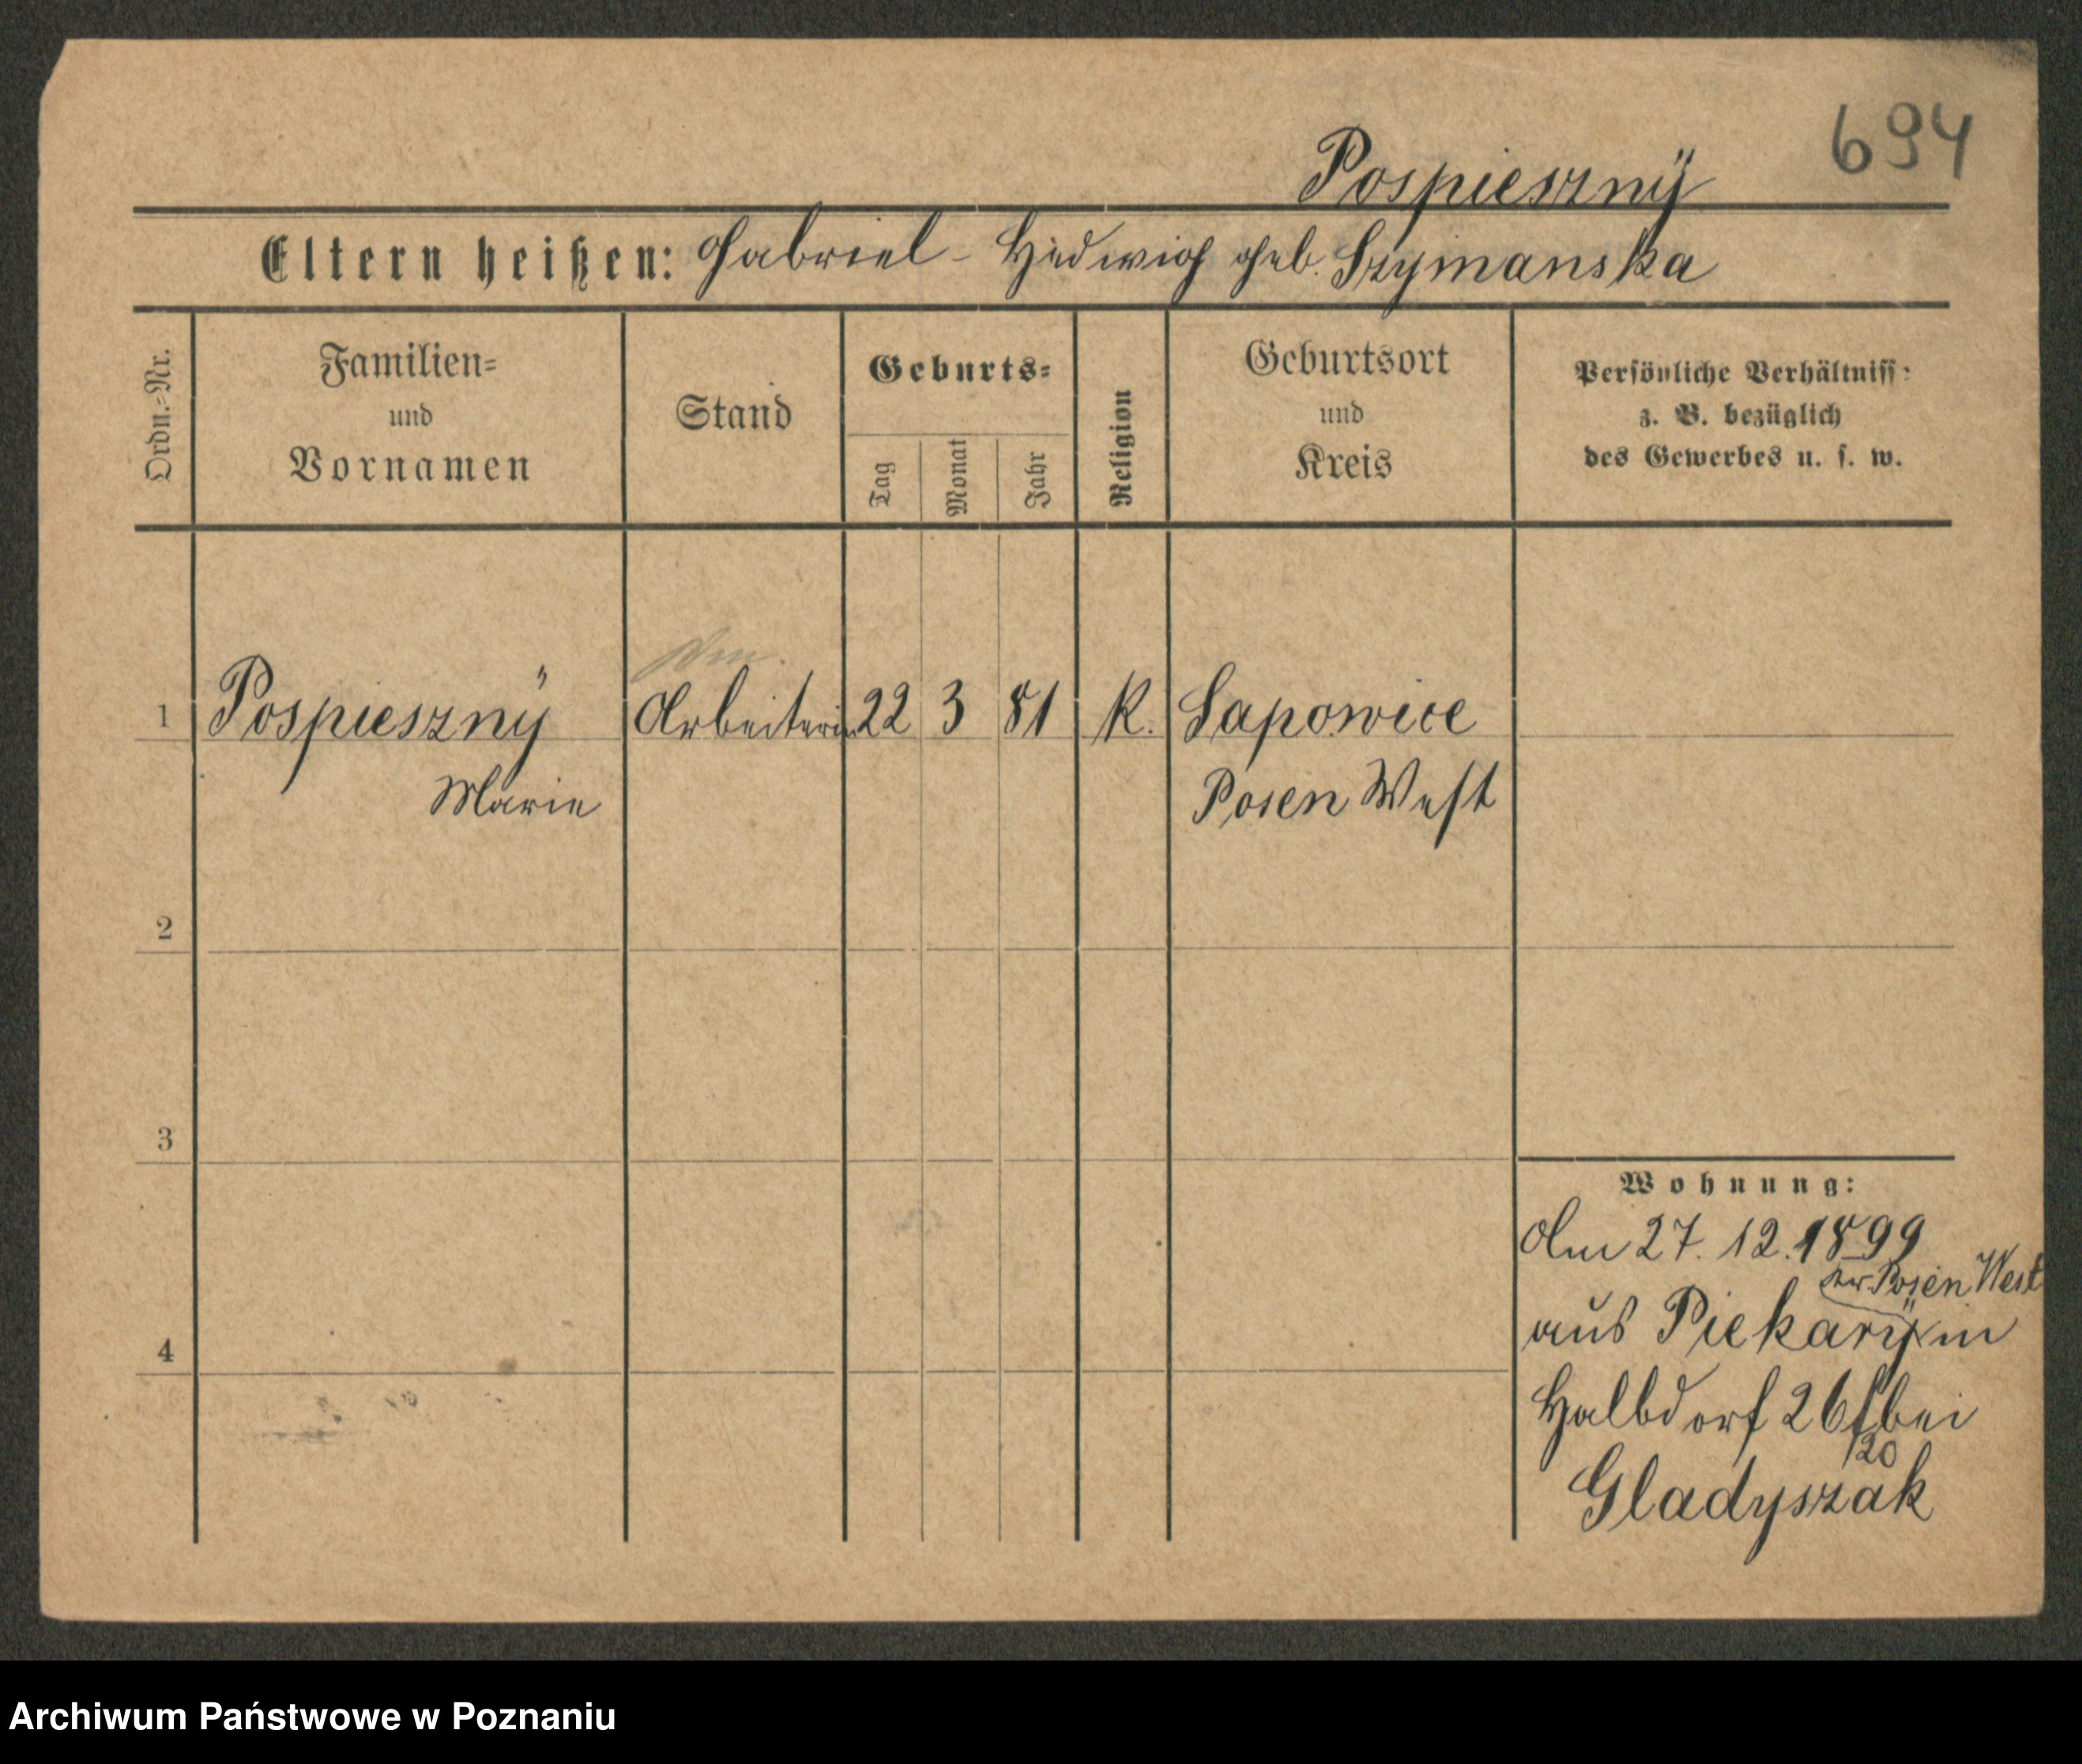 694
Pospieszny
Eltern heißen: Gabriel - Hedwig geb. Szymanska
Ordn.=Nr.
Familien=
und
Vornamen
Stand
Geburts=
Tag
Monat
Jahr
Religion
Geburtsort
und
Kreis
Persönliche Verhältniss:
z. B. bezüglich
des Gewerbes u. s. w.
1 Pospieszny Arbeiterin 22 3 81 K. Sapowice
Marie Posen West
2
3
4
Wohnung:
Am 27. 12. 1899
Kr. Posen West
aus Piekary in
Halbdorf 26 bei
120
Gladyszak
Archiwum Państwowe w Poznaniu